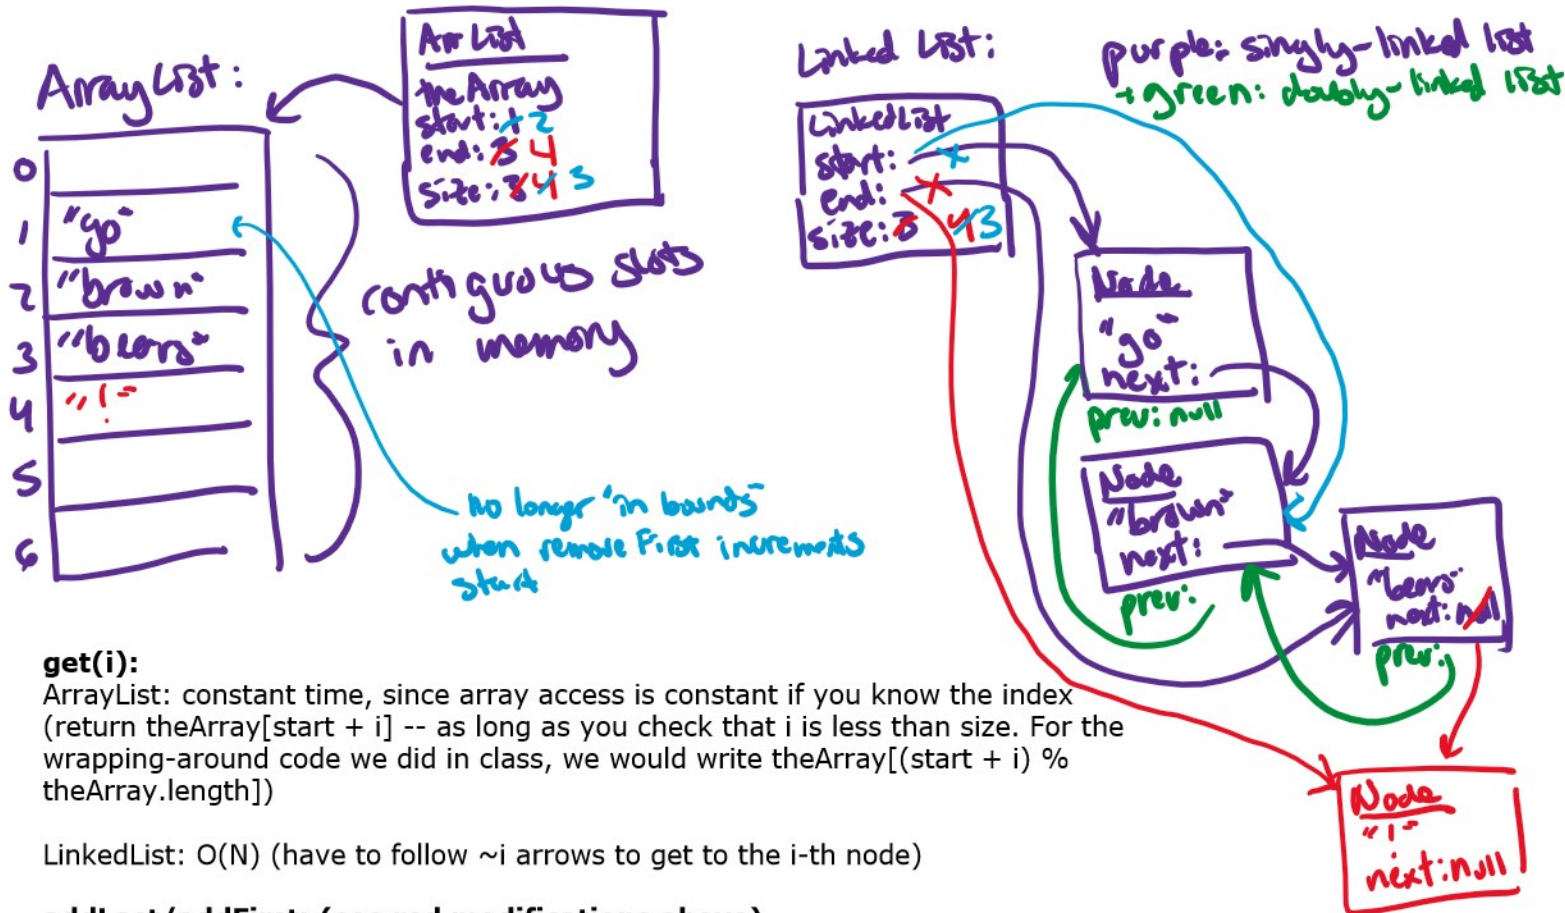 ArrayList:
ArrList
theArray
start: 1 2
end: 3 4
size: 3 4 3
0
1 "go"
2 "brown"
3 "bears"
4 "!"
5
6
contiguous slots
in memory
no longer "in bounds"
when removeFirst increments
start
Linked List:
purple: singly-linked list
+ green: doubly-linked list
LinkedList
start:
end:
size: 3 4 3
Node
"go"
next:
prev: null
Node
"brown"
next:
prev:
Node
"bears"
next: null
prev:
Node
"!"
next: null
get(i):
ArrayList: constant time, since array access is constant if you know the index
(return theArray[start + i] -- as long as you check that i is less than size. For the
wrapping-around code we did in class, we would write theArray[(start + i) %
theArray.length])
LinkedList: O(N) (have to follow ~i arrows to get to the i-th node)
addLast/addFirst: (see red modifications above)